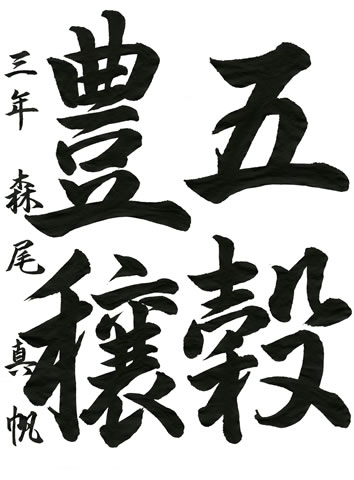 五穀
豊穣
三年 森尾真帆